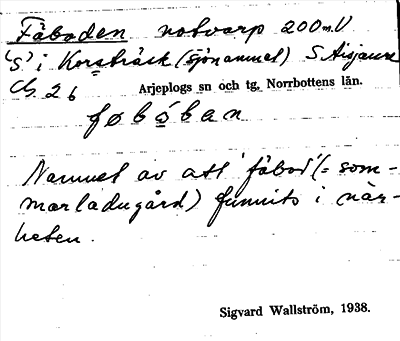 Fäboden notvarp 200 m. V
'S' i Korsträsk (sjönamnet) S. Aisjaure
Ch. 26 Arjeplogs sn och tg, Norrbottens län.
føbóban
Namnet av att 'fäbod' (= som-
marladugård) funnits i när-
heten.
Sigvard Wallström, 1938.